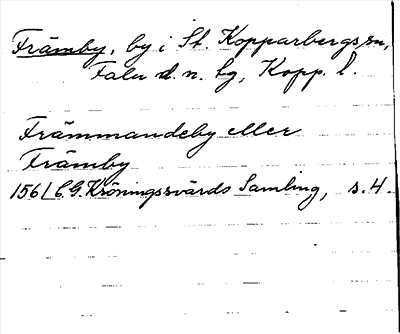 Främby, by i St. Kopparbergs sn,
Falu d. n. bg, Kopp. l.
Främmandeby eller
Främby
1561 C.G. Kröningsvärds Samling, s. 4.